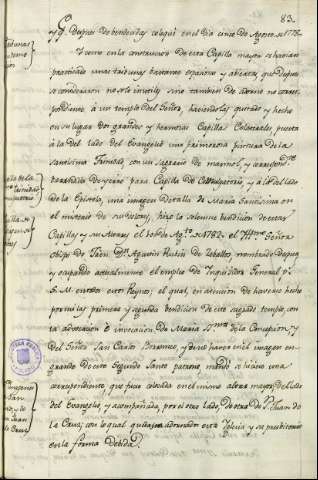 83.
y g. Despues de bendecidas colgué en el dia cinco de Agosto de 1778.
Y como en la construccion de esta Capilla mayor se havian
practicado unas tribunas bastante espaciosas y abiertas que despues
se consideraron no solo inutiles sino tambien de adorno no corres-
pondiente à un templo del Señor, haviendolas quitado y hecho
en su lugar dos grandes y hermosas Capillas Colaterales, puesta
à la del lado del Evangelio una primorosa pintura de la
santisima Trinidad con un sagrario de marmol, y correspond.te
para Capilla de y à la del lado
de la Epistola, una imagen de talla de Maria Santissima en
el misterio de sus Dolores, hizo la solemne bendicion de estas
Capillas y sus Altares el de Ag.to de 1782. el Ill.mo Señor
obispo de Jaen D.n Agustin Rubin de Zeballos, nombrado despues
y ocupando actualmente el empleo de Inquisidor General p.r
S. M. en todos estos Reynos; el qual, en atencion de haverse hecho
por una primera y segunda bendicion de este sagrado templo con
la advocacion è invocacion de Maria S.ma de la Concepcion, y
del Señor San Carlos Borromeo, y de no haver en el imagen en
grande de este Segundo Santo patrono mandó se hiciera una
correspondiente que fuese colocada en el mismo altar mayor del lado
del Evangelio, y acompañada, por el otro lado, de otra de S.n Juan de
la Cruz, con lo qual quedaron adornados esta Iglesia y su presbiterio
en la forma debida.